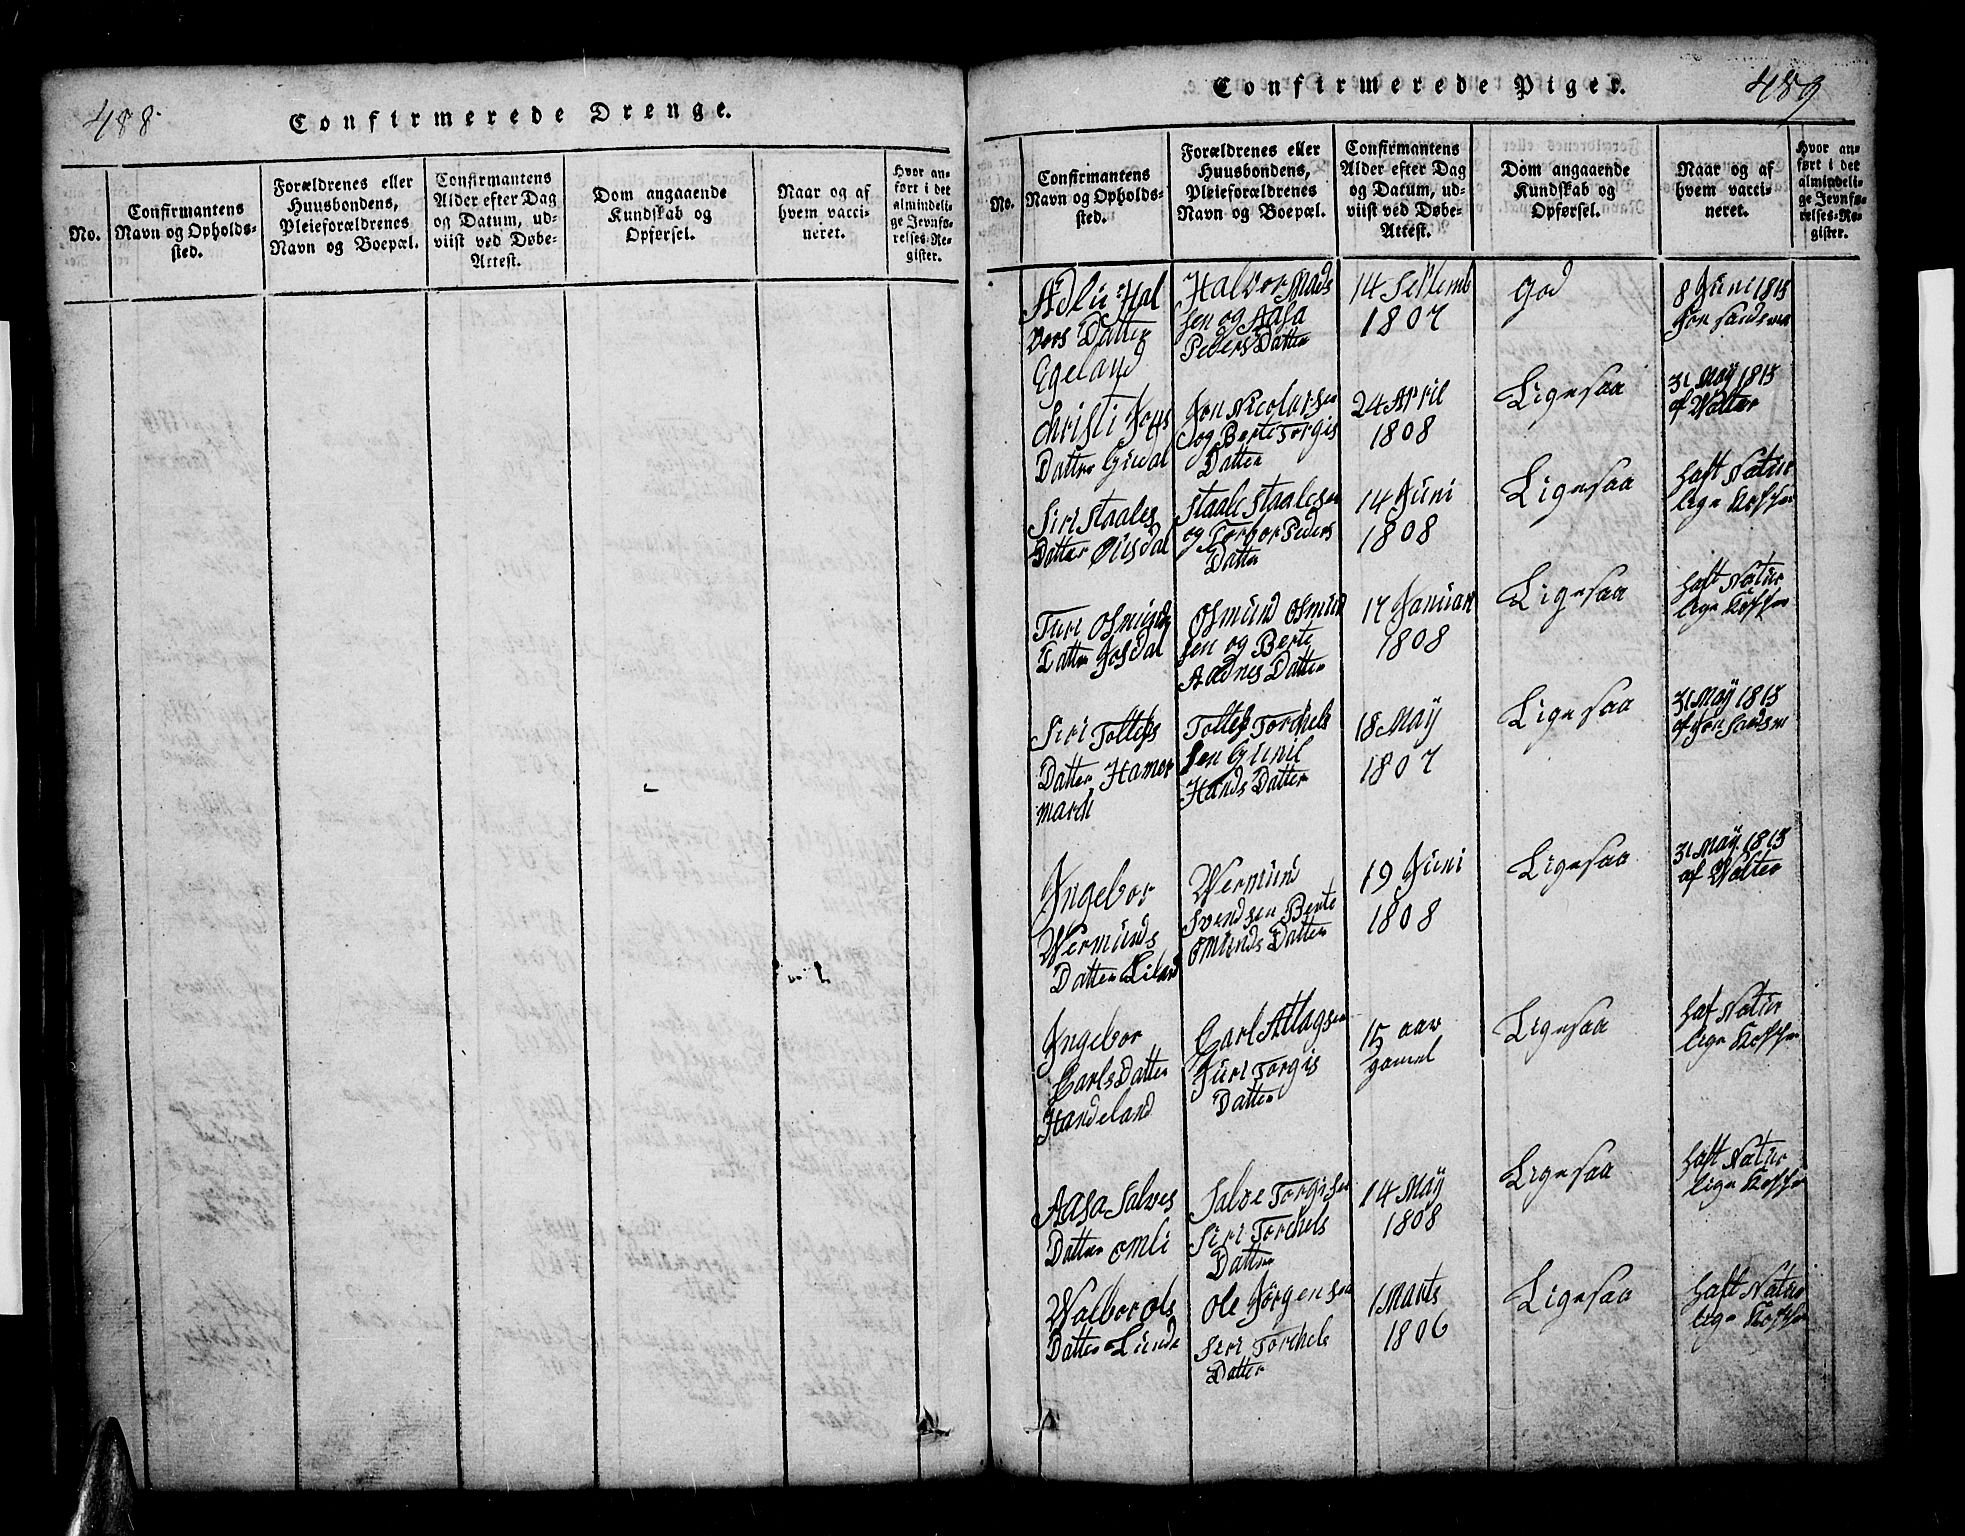 488
Confirmerede Drenge.
No.
Confirmantens
Navn og Opholds-
sted.
Forældrenes eller
Huusbondens,
Pleieforældrenes
Navn og Boepæl.
Confirmantens
Alder efter Dag
og Datum, ud-
viist ved Døbe-
Attest.
Dom angaaende
Kundskab og
Opførsel.
Naar og af
hvem vacci-
neret.
Hvor an-
ført i det
almindeli-
ge Jevnfø-
relses-Re-
gister.
Confirmerede Piger.
489
No.
Confirmantens
Navn og Opholds-
sted.
Forældrenes eller
Huusbondens,
Pleieforældrenes
Navn og Boepæl.
Confirmantens
Alder efter Dag
og Datum, ud-
viist ved Døbe-
Attest.
Dom angaaende
Kundskab og
Opførsel.
Naar og af
hvem vacci-
neret.
Hvor an-
ført i det
almindeli-
ge Jevnfø-
relses-Re-
gister.
Adlu Hal
vors Datter
Egeland
Halvor Mads
sen og Aasa
Peders Datter
14 Septemb
1807
god
8 Juni 1815
Christi Jons
Datter
Jon Nicolaisen
og Berte Torgis
Datter
24 April
1808
Ligesaa
31 May 1815
af Wolter
Siri Staales
Datter Ousdal
Staale Staalesen
og Torbor Peders
Datter
14 Juni
1808
Ligesaa
haft Natur
lige Kopper
Turi Osmunds
Datter Josdal
Osmund Osmund
sen og Berte
Aadnes Datter
17 Januari
1808
Ligesaa
haft Natur
lige Kopper
Siri Tollefs
Datter Hamer
march
Tollef Torchels
sen Gunil
Hands Datter
18 May
1807
Ligesaa
31 May 1815
af Jon
Ingebor
Wermunds
Datter Eiland
Wermund
Svendsen Berte
Omunds Datter
19 Juni
1808
Ligesaa
31 May 1815
af Wolter
Ingebor
Carls Datter
Handeland
Carl Atlagsen
Juri Torgis
Datter
15 aar
gamel
Ligesaa
haf Natur
lige Kopper
Aasa Salves
Datter Omli
Salve Torgisen
Siri Torchels
Datter
14 May
1808
Ligesaa
haft Natur
lige Kopper
Walbor Ols
Datter Lunde
Ole Jørgensen
Siri Torchels
Datter
1 Marts
1806
Ligesaa
haft Natur
lige Kopper